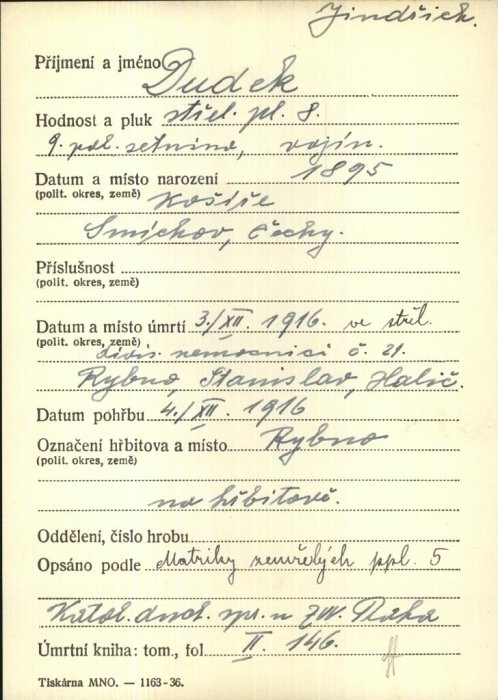 Jindřich.
Příjmení a jméno Dudek
Hodnost a pluk střel. pl. 8.
9. pol. setnina, vojín.
Datum a místo narození 1895
(polit. okres, země) Košíře
Smíchov, Čechy.
Příslušnost
(polit. okres, země)
Datum a místo úmrtí 3./XII. 1916. ve střel.
(polit. okres, země) divis. nemocnici č. 21.
Rybno, Stanislav, Halič.
Datum pohřbu 4./XII. 1916
Označení hřbitova a místo Rybno
(polit. okres, země)
na hřbitově.
Oddělení, číslo hrobu
Opsáno podle Matriky zemřelých ppl. 5
Katol. duch. spr. u ZVV. Praha
Úmrtní kniha: tom., fol II. 146.
Tiskárna MNO. — 1163-36.